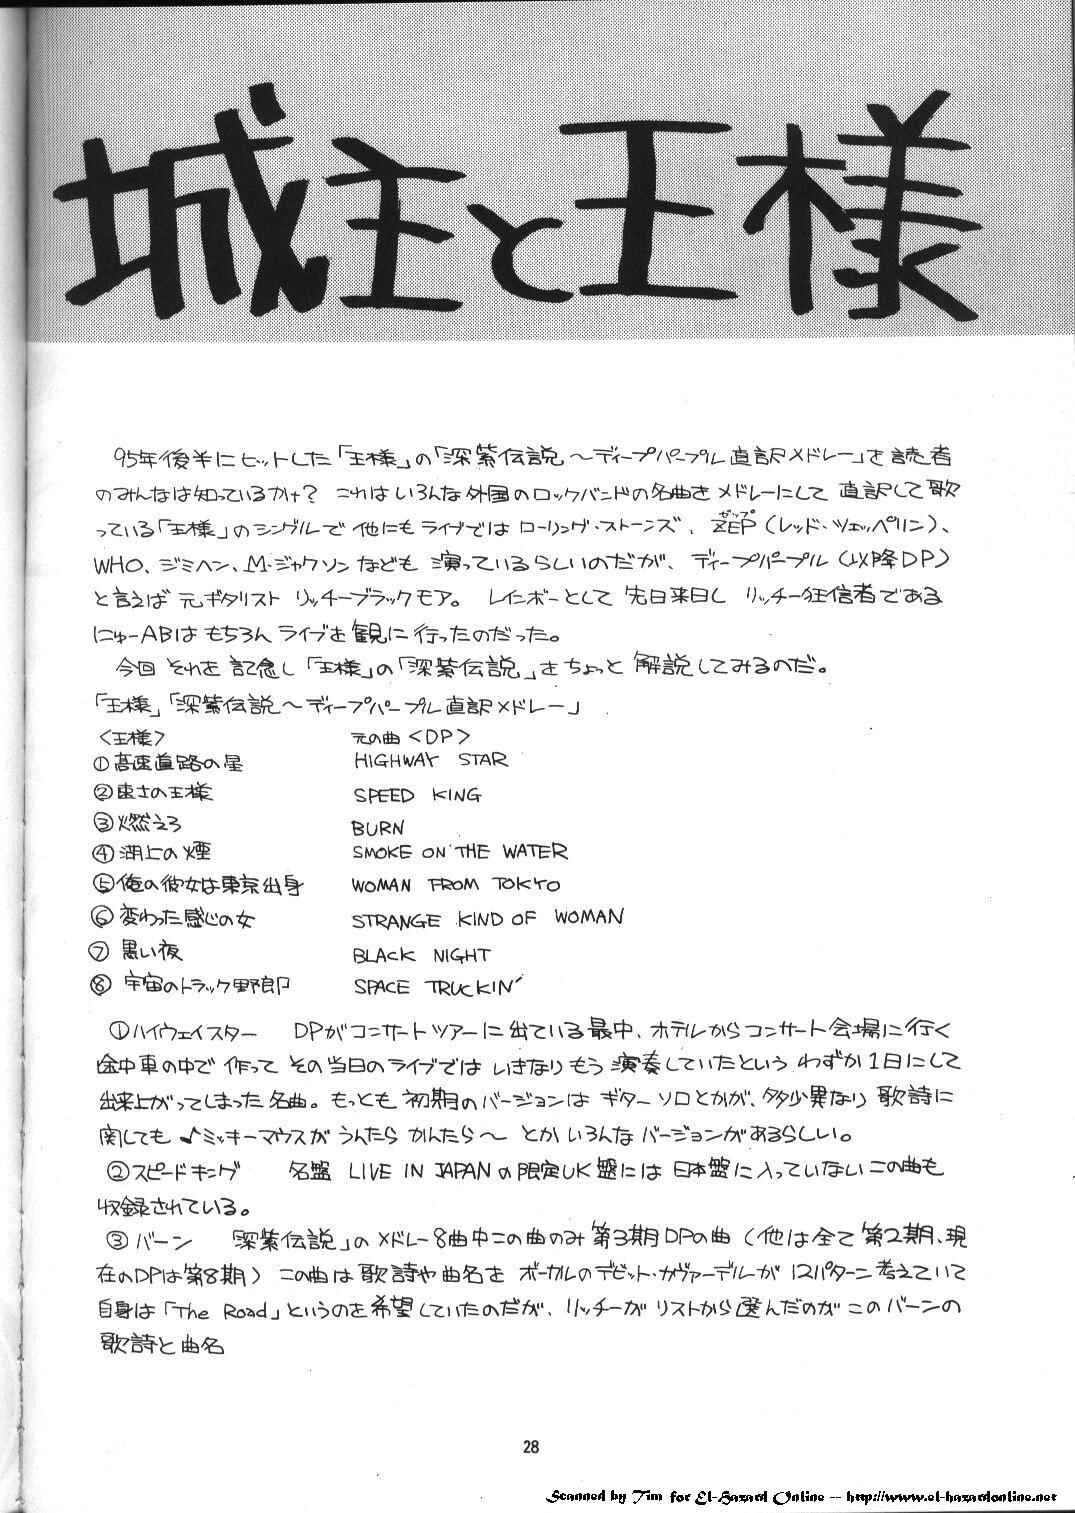 城主と王様
95年後半にヒットした「王様」の「深紫伝説～ディープパープル直訳メドレー」を読者
のみんなは知っているかけ？ これはいろんな外国のロックバンドの名曲をメドレーにして 直訳して歌
っている「王様」のシングルで 他にも ライブでは ローリング・ストーンズ、ZEP（レッド・ツェッペリン）、
ゼップ
WHO、ジミヘン、M・ジャクソンなども 演っているらしいのだが、ディープパープル（以降DP）
と言えば 元ギタリスト リッチーブラックモア。 レインボーとして 先日来日し リッチー狂信者である
にゅーABは もちろん ライブを観に行ったのだった。
今回 それを 記念し 「王様」の「深紫伝説」をちょっと 解説してみるのだ。
「王様」「深紫伝説～ディープパープル直訳メドレー」
<王様> 元の曲<DP>
①高速道路の星 HIGHWAY STAR
②速さの王様 SPEED KING
③燃えろ BURN
④湖上の煙 SMOKE ON THE WATER
⑤俺の彼女は東京出身 WOMAN FROM TOKYO
⑥変わった感じの女 STRANGE KIND OF WOMAN
⑦黒い夜 BLACK NIGHT
⑧宇宙のトラック野郎 SPACE TRUCKIN'
①ハイウェイスター DPがコンサートツアーに出ている最中、ホテルからコンサート会場に行く
途中車の中で 作って その当日のライブでは いきなりもう 演奏していたという わずか1日にして
出来上がってしまった 名曲。もっとも 初期のバージョンは ギターソロとかが、多少異なり 歌詩に
関しても ♪ミッキーマウスが うんたら かんたら～ とか いろんな バージョンがあるらしい。
②スピードキング 名盤 LIVE IN JAPANの限定UK盤には 日本盤に入っていないこの曲も
収録されている。
③バーン 「深紫伝説」のメドレー8曲中この曲のみ 第3期DPの曲（他は全て 第2期、現
在のDPは第8期）この曲は 歌詩や曲名を ボーカルのデビット・カヴァーデルが 12パターン考えていて
自身は「The Road」というのを希望していたのだが、リッチーが リストから選んだのが このバーンの
歌詩と曲名
28
Scanned by Tim for El-Hazard Online -- http://www.el-hazardonline.net